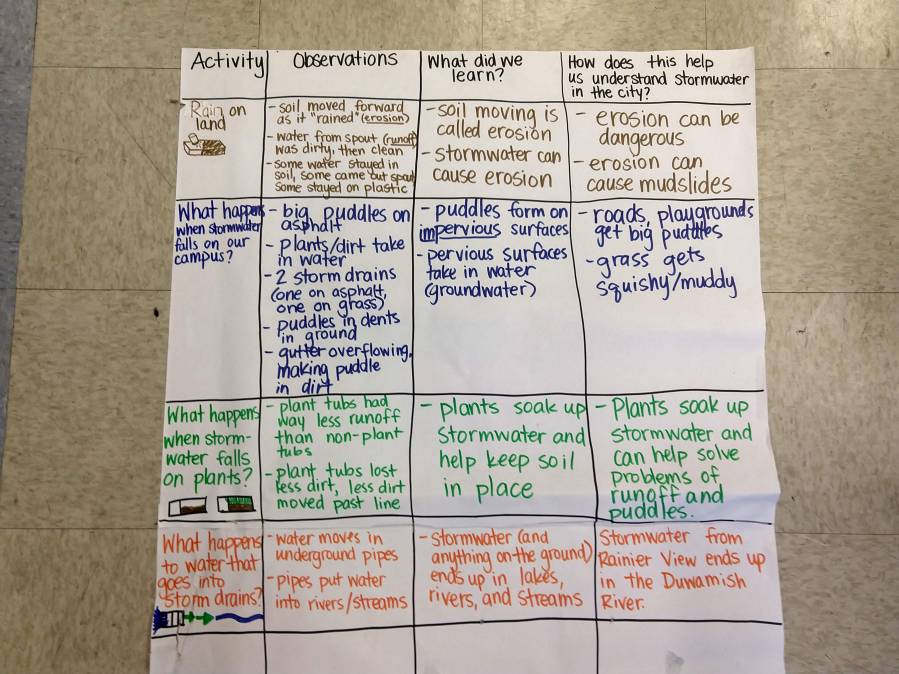 Activity
Observations
What did we
learn?
How does this help
us understand stormwater
in the city?
Rain on
land
- soil moved forward
as it "rained" (erosion)
- water from spout (runoff)
was dirty, then clean
- some water stayed in
soil, some came out spout
Some stayed on plastic
- soil moving is
called erosion
- stormwater can
cause erosion
- erosion can be
dangerous
- erosion can
cause mudslides
What happens
when stormwater
falls on our
campus?
- big puddles on
asphalt
- plants/dirt take
in water
- 2 storm drains
(one on asphalt,
one on grass)
- puddles in dents
in ground
- gutter overflowing,
making puddle
in dirt
- puddles form on
impervious surfaces
- pervious surfaces
take in water
(groundwater)
- roads, playgrounds
get big puddles
- grass gets
squishy/muddy
What happens
when storm-
water falls
on plants?
- plant tubs had
way less runoff
than non-plant
tubs
- plant tubs lost
less dirt, less dirt
moved past line
- plants soak up
stormwater and
help keep soil
in place
- Plants soak up
stormwater and
can help solve
problems of
runoff and
puddles.
What happens
to water that
goes into
storm drains?
- water moves in
underground pipes
- pipes put water
into rivers/streams
- stormwater (and
anything on the ground)
ends up in lakes,
rivers, and streams
Stormwater from
Rainier View ends up
in the Duwamish
River.